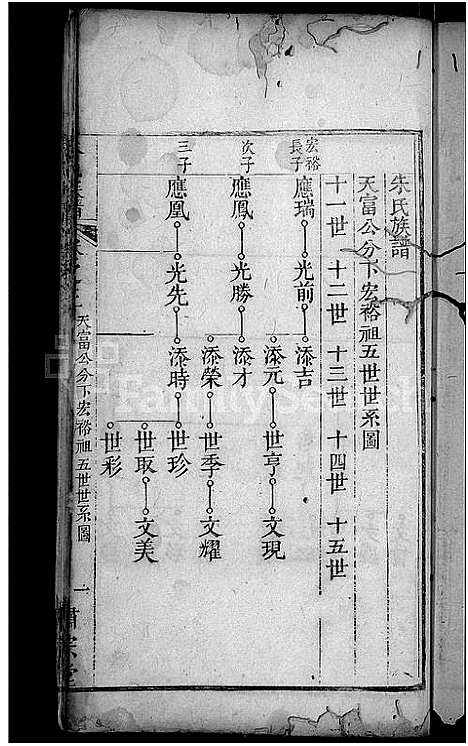 朱氏族譜
天富公分下宏裕祖五世世系圖
十一世 十二世 十三世 十四世 十五世
宏裕長子 應瑞 光前 添吉
添元 世亨 文現
次子 應鳳 光勝 添才
添榮 世季 文耀
三子 應凰 光先 添時 世珍
世取 文美
世彩
天富公分下宏裕祖五世世系圖
一
FamilySearch